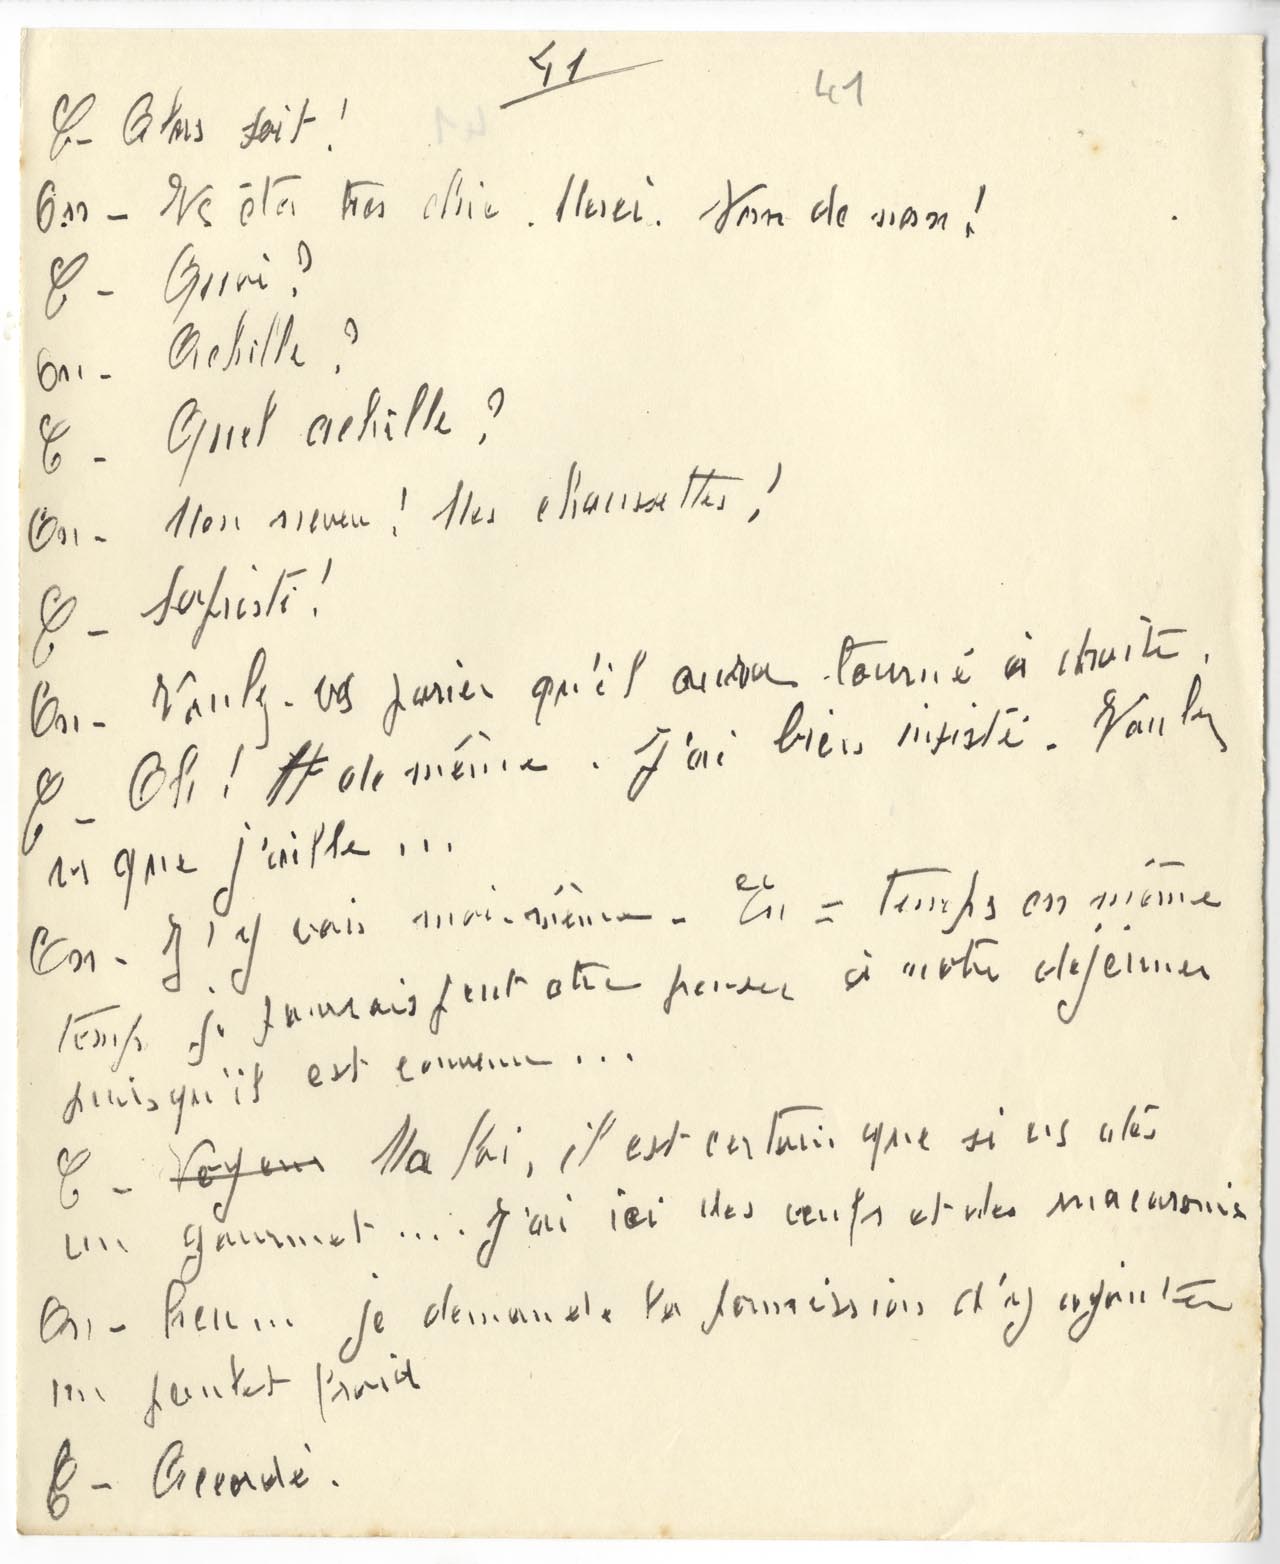 41
41
C - Alors soit !
On - Vs êtes très chic. Merci. Nom de nom !
C - Quoi ?
On - Achille ?
C - Quel achille ?
On - Mon neveu ! Mes chaussettes !
C - Sapristi !
On - Voulez-vs parier qu'il aura tourné à droite.
C - Oh ! tt de même. J'ai bien insisté. Voulez
vs que j'aille ...
On - J'y vais moi-même. En = temps en même
temps je pourrais peut être penser à notre déjeuner
puisqu'il est convenu ...
C - Voyons Ma foi, il est certain que si vs êtes
un gourmet .... J'ai ici des oeufs et des macaronis
On - heu... je demande la permission d'y ajouter
un poulet froid
C - Accordé.